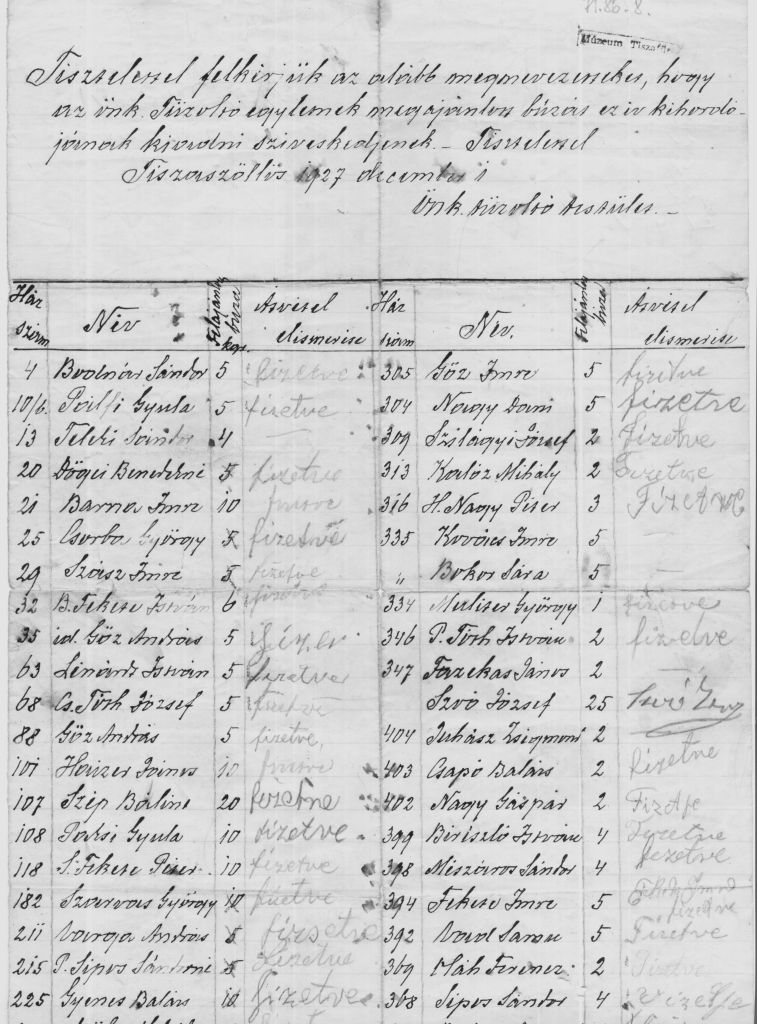 Múzeum
Tisztelettel felkérjük az alább megnevezetteket, hogy
az önk. Tűzoltó egyletnek megajánlott búzát ez év kihordó-
jának kiadni sziveskedjenek. – Tisztelettel
Tiszaszőllős 1927 december 1
Önk. tűzoltó testület. –
Ház szám Név Felajánlott búza kgr. Átvétel elismerése Ház szám Név. Felajánlott búza Átvétel elismerése
4 Bodnár Sándor 5 fizetve 305 Göz Imre 5 fizetve
10/b. Pálfi Gyula 5 fizetve 304 Nagy Dani 5 fizetve
13 Teleki Sándor 4 — 309 Szilágyi József 2 fizetve
20 Dögei Benedekné 5 fizetve 313 Kalóz Mihály 2 Fizetve
21 Barna Imre 10 316 H. Nagy Péter 3
25 Csorba György 5 fizetve 335 Kovács Imre 5 —
29 Szász Imre 5 fizetve „ Bokor Sára 5 —
32 B. Fekete István 6 334 György 1 fizetve
35 id. Göz András 5 346 P. Tóth István 2 fizetve
63 Lénárt István 5 fizetve 347 Fazekas János 2 —
68 Cs. Tóth József 5 fizetve Szvó József 25
88 Göz András 5 fizetve, 404 Juhász Zsigmond 2
101 János 10 403 Csapó Balázs 2 fizetve
107 Szép Bálint 20 fizetve 402 Nagy Gáspár 2
108 Gyula 10 fizetve 399 István 4 fizetve
118 S. Fekete Péter 10 fizetve 398 Mészáros Sándor 4 fizetve
182 Szarvas György 10 fizetve 394 Fekete Imre 5 fizetve
211 Varga András 5 fizetve 392 Vad 5 Fizetve
215 P. Sipos Sándorné 5 fizetve 369 Oláh Ferencz 2 Fizetve
225 Gyenes Balázs 10 fizetve 368 Sipos Sándor 4